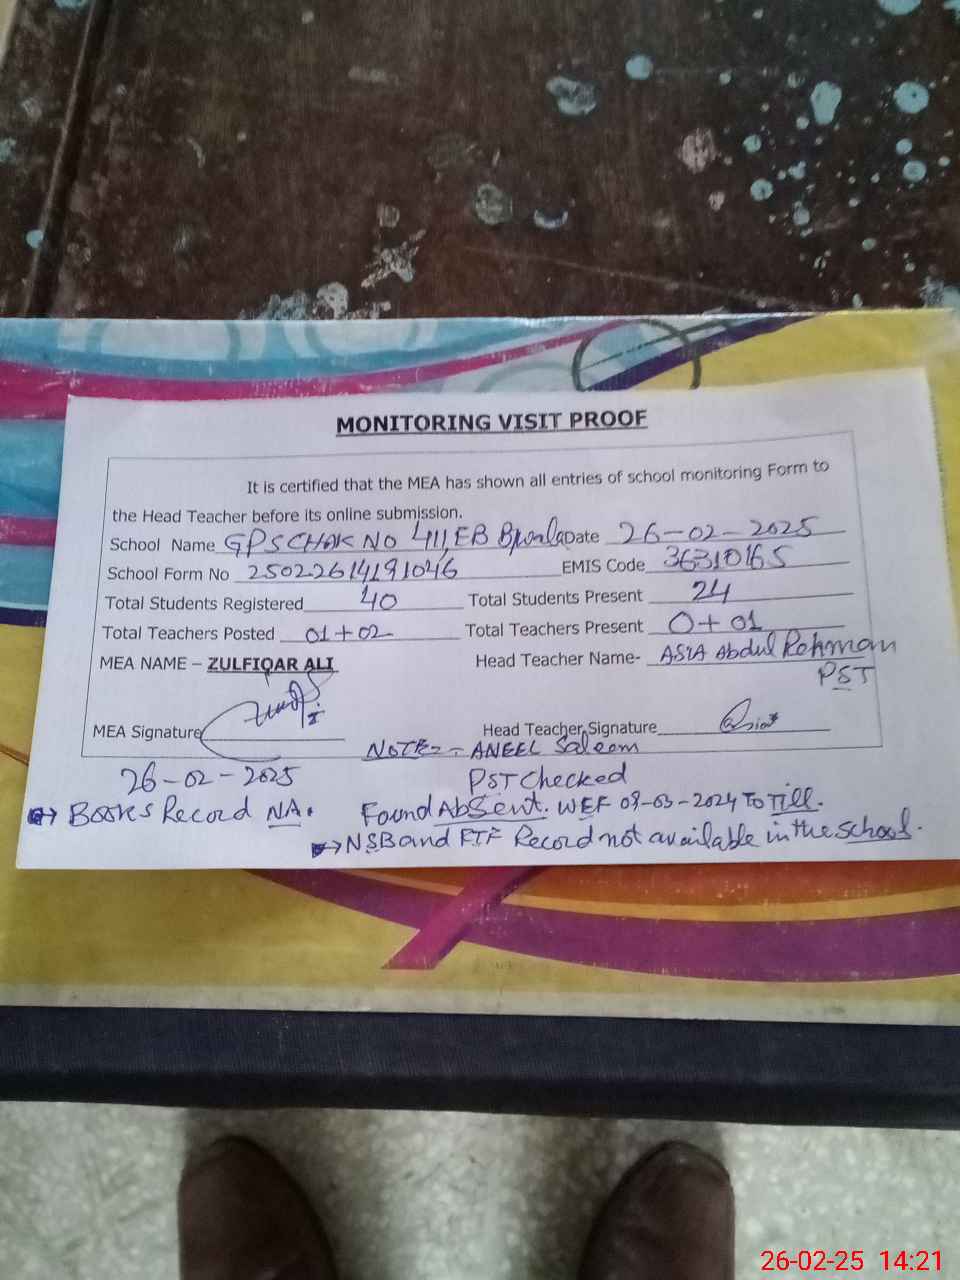 MONITORING VISIT PROOF
It is certified that the MEA has shown all entries of school monitoring Form to
the Head Teacher before its online submission.
School Name GPS CHAK NO 411, EB Date 26-02-2025
School Form No 25022614191046 EMIS Code 36310165
Total Students Registered 40 Total Students Present 24
Total Teachers Posted 01+02 Total Teachers Present 0+01
MEA NAME – ZULFIQAR ALI Head Teacher Name- ASIA Abdul Rehman
PST
MEA Signature Head Teacher Signature
NOTE:- ANEEL Saleem
26-02-2025 PST Checked
→ Books Record NA. Found Absent. WEF 09-03-2024 To Till.
→ NSB and FTF Record not available in the school.
26-02-25 14:21